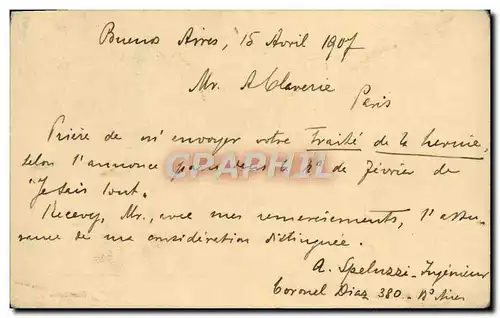 Buenos Aires, 15 Avril 1907
Mr. A Claverie
Paris
Prière de m'envoyer votre Traité de la hernie,
selon l'annonce parue dans le Nº de février de
"Je sais tout".
Recevez, Mr., avec mes remerciements, l'assu-
rance de ma considération distinguée.
A. Speluzzi - Ingénieur
Coronel Diaz 380 - Bs Aires
CPARAMA.COM